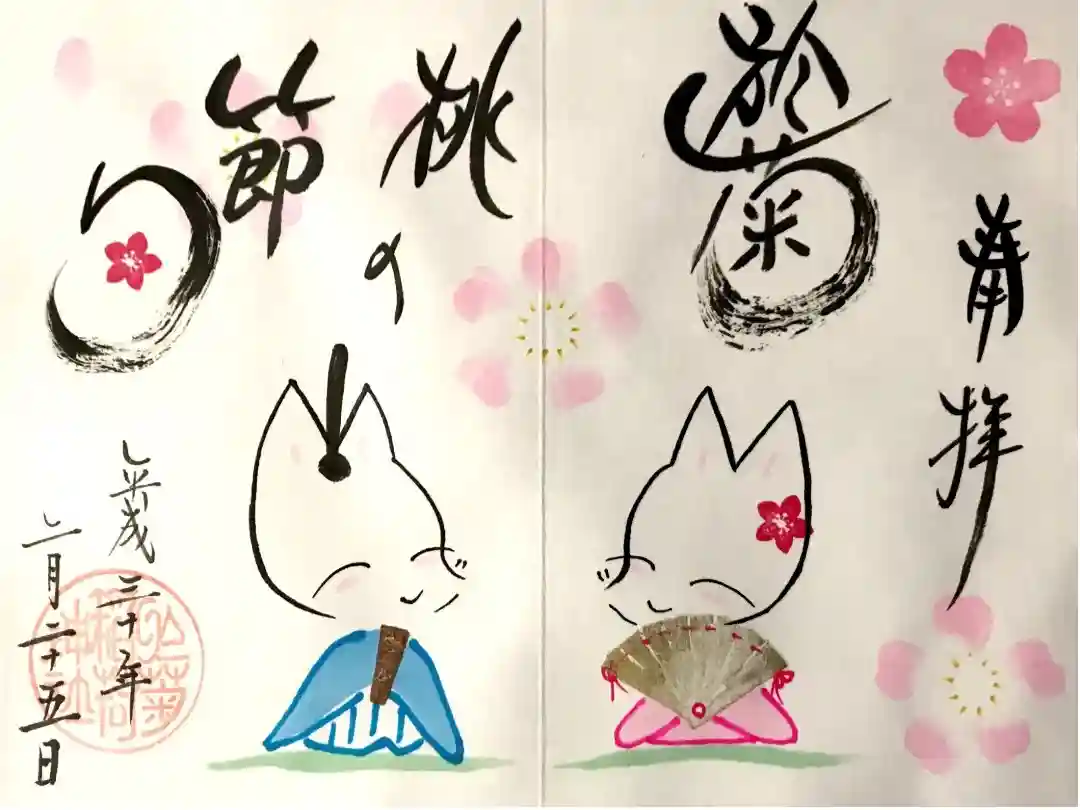 奉拝
於菊
桃の
節句
平成三十年
二月二十五日
於菊
稲荷
神社